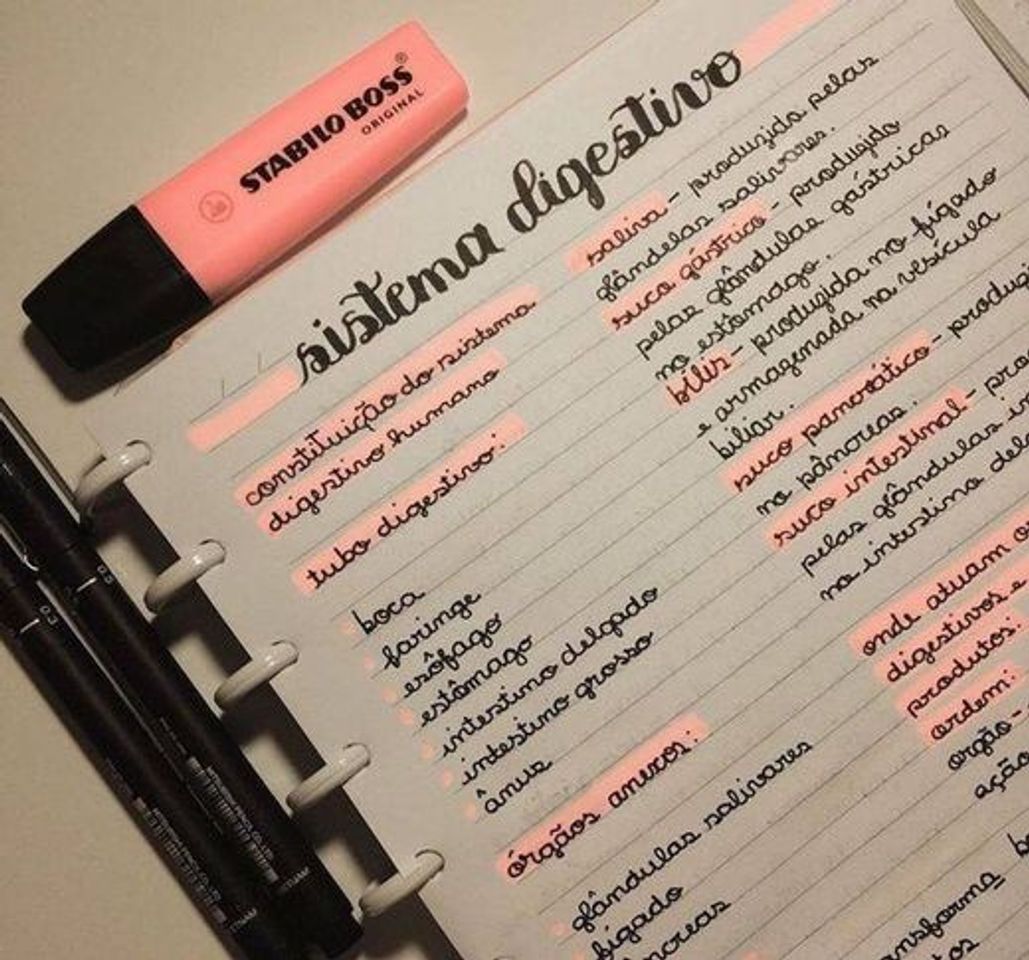 STABILO BOSS®
ORIGINAL
sistema digestivo
constituição do sistema
digestivo humano
tubo digestivo:
boca
faringe
esôfago
estômago
intestino delgado
intestino grosso
ânus
órgãos anexos:
glândulas salivares
fígado
saliva - produzida pelas
glândelas salivares.
suco gástrico - produzido
pelas glândulas gástricas
no estômago.
bílis - produzida no fígado
e armazenada na vesícula
biliar.
suco pancreático -
no pâncreas.
suco intestinal -
pelas glândulas
no intestino
onde atuam os
digestivos e
produtos:
ordem:
orgão -
ação
0.5
0.3